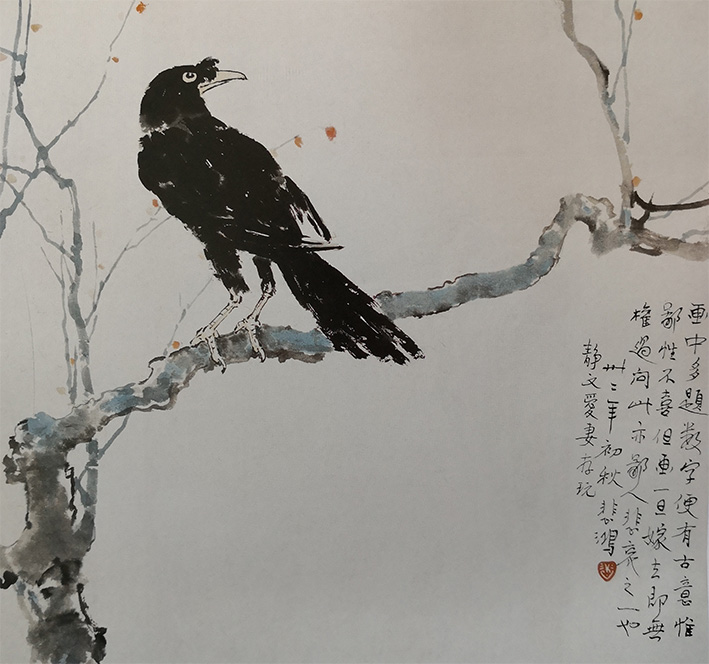 画中多題数字便有古意惟
鄙性不喜但画一旦嫁去即無
權過问此亦鄙人悲哀之一也
卅三年初秋 悲鴻
靜文愛妻存玩